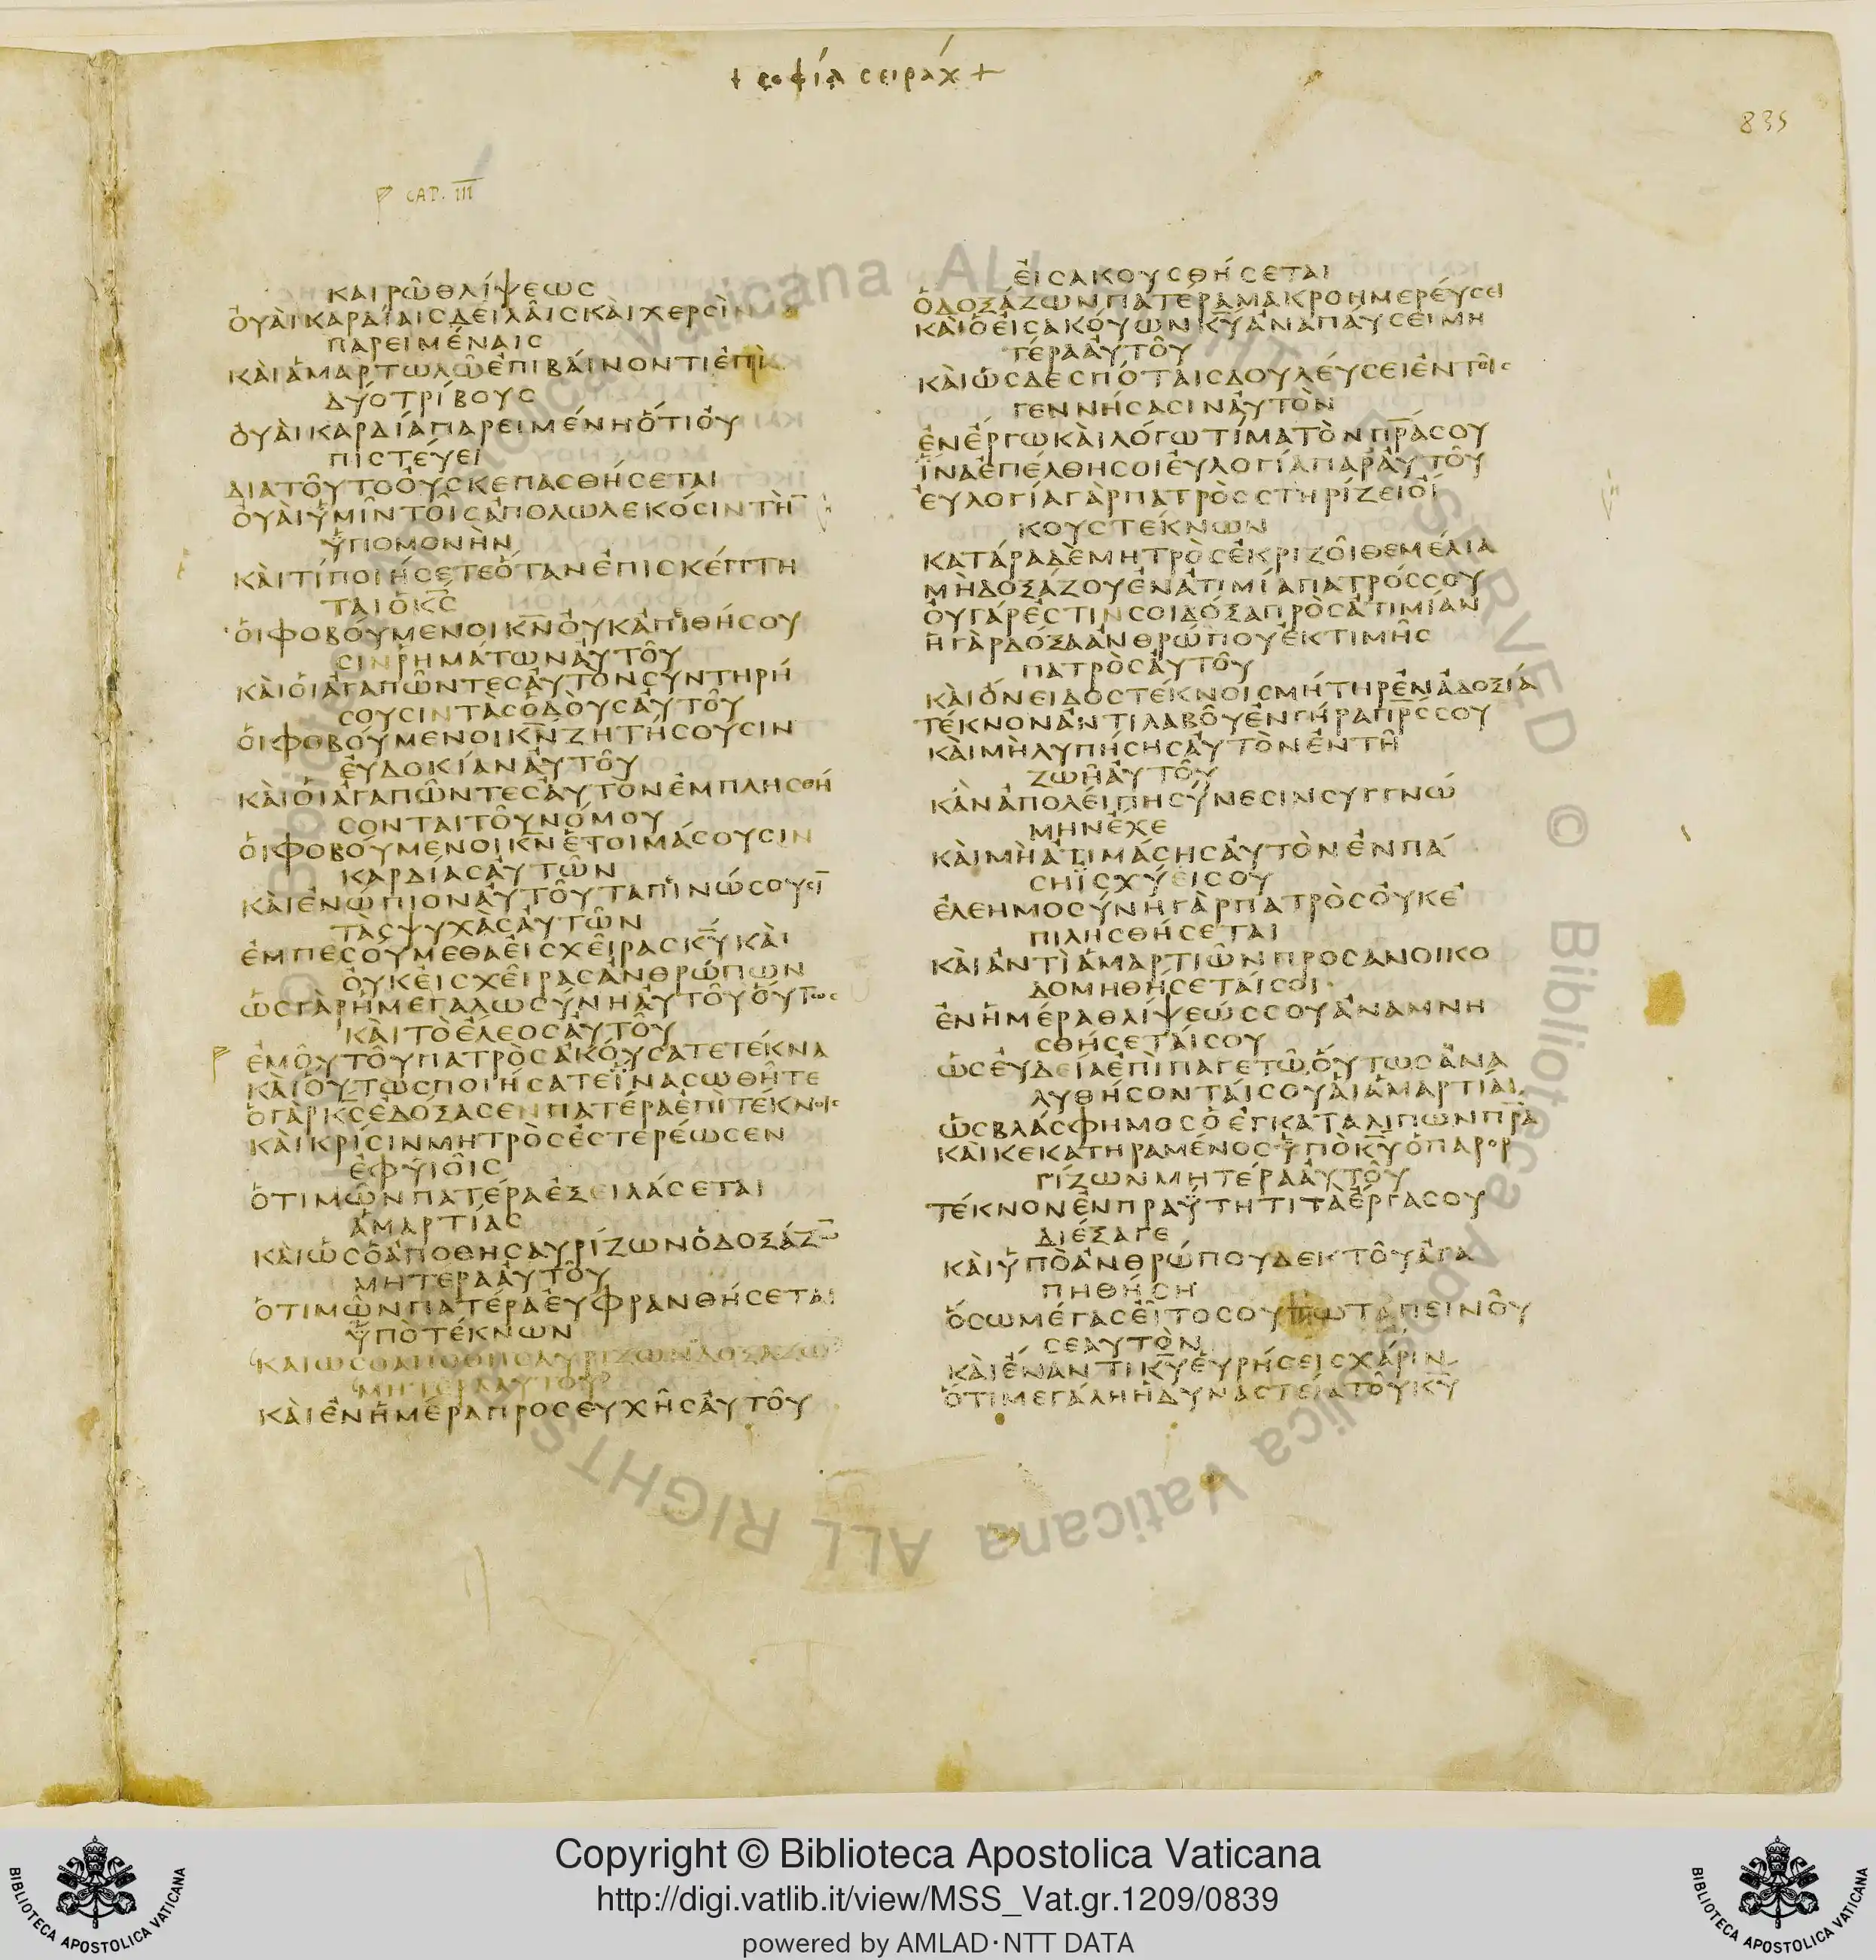 + σοφία σειράχ +
835
CAP. III
καιρῶ θλίψεωσ
ὀυὰι καρδίαισ δειλᾶισ κὰι χερσὶν
παρειμέναισ
κὰι ἁμαρτωλῶ ἐπιβάινοντι ἐπὶ
δύο τρίβουσ
ὀυὰι καρδία παρειμένη ὅτι ὀυ
πιστέυει
διατοῦτο ὀυ σκεπασθήσεται
ὀυὰι ὑμῖν τοῖσ ἀπολωλεκόσιν τὴ̅
ὑπομονὴν
κὰι τί ποιήσετε ὅταν ἐπισκέπτη
ται ὁ κ̅σ̅
ὁι φοβούμενοι κ̅ν̅ ὀυκ ἀπιθήσου
σιν ῥημάτων ἀυτοῦ
κὰι ὁι ἀγαπῶντεσ ἀυτὸν συντηρή
σουσιν τὰσ ὁδοὺσ ἀυτοῦ
ὁι φοβούμενοι κ̅ν̅ ζητήσουσιν
ἐυδοκίαν ἀυτοῦ
κὰι ὁι ἀγαπῶντεσ ἀυτὸν ἐμπλησθή
σονται τοῦ νόμου
ὁι φοβούμενοι κ̅ν̅ ἑτοιμάσουσιν
καρδίασ ἀυτῶν
κὰι ἐνώπιον ἀυτοῦ ταπινώσουσι̅
τὰσ ψυχὰσ ἀυτῶν
ἐμπεσούμεθα ἐισ χεῖρασ κ̅υ̅ κὰι
ὀυκ ἐισ χεῖρασ ἀνθρώπων
ὡσ γὰρ ἡ μεγαλωσύνη ἀυτοῦ ὅυτωσ
κὰι τὸ ἔλεοσ ἀυτοῦ
ἐμοῦ τοῦ πατρὸσ ἀκούσατε τέκνα
κὰι ὅυτωσ ποιήσατε ἵνα σωθῆτε
ὁ γὰρ κ̅σ̅ ἐδόξασεν πατέρα ἐπὶ τέκνοισ
κὰι κρίσιν μητρὸσ ἐστερέωσεν
ἐφ υἱοῖσ
ὁ τιμῶν πατέρα ἐξειλάσεται
ἁμαρτίασ
κὰι ὡσ ὁ ἀποθησαυρίζων ὁ δοξάζω̅
μητέρα ἀυτοῦ
ὁ τιμῶν πατέρα ἐυφρανθήσεται
ὑπὸ τέκνων
και ωσ ο αποθησαυριζων δοξαζω
μητερα αυτου
κὰι ἐν ἡμέρα προσευχῆσ ἀυτοῦ
ἐισακουσθήσεται
ὁ δοξάζων πατέρα μακροημερέυσει
κὰι ὁ ἐισακόυων κ̅υ̅ ἀναπάυσει μη
τέρα ἀυτοῦ
κὰι ὡσ δεσπόταισ δουλέυσει ἐν τοῖσ
γεννήσασιν ἀυτὸν
ἐν ἔργω κὰι λόγω τίμα τὸν π̅ρ̅α̅ σου
ἵνα ἐπέλθη σοι ἐυλογία παρ ἀυτοῦ
ἐυλογία γὰρ πατρὸσ στηρίζει ὀί
κουσ τέκνων
κατάρα δὲ μητρὸσ ἐκριζοῖ θεμέλια
μὴ δοξάζου ἐν ἀτιμία πατρόσ σου
ὀυ γάρ ἐστιν σοι δόξα πρὸσ ἀτιμίαν
ἡ γὰρ δόξα ἀνθρώπου ἐκ τιμῆσ
πατρὸσ ἀυτοῦ
κὰι ὄνειδοσ τέκνοισ μήτηρ ἐν ἀδοξία
τέκνον ἀντιλαβοῦ ἐν γήρα π̅ρ̅σ̅ σου
κὰι μὴ λυπήσησ ἀυτὸν ἐν τῆ
ζωῆ ἀυτοῦ
κἂν ἀπολέιπη σύνεσιν συγγνώ
μην ἔχε
κὰι μὴ ἀτιμάσησ ἀυτὸν ἐν πά
ση ἰσχύει σου
ἐλεημοσύνη γὰρ πατρὸσ ὀυκ ἐ
πιλησθήσεται
κὰι ἀντὶ ἁμαρτιῶν προσανοικο
δομηθήσεταί σοι
ἐν ἡμέρα θλίψεώσ σου ἀναμνη
σθήσεταί σου
ὡσ ἐυδεία ἐπὶ παγετῶ ὅυτωσ ἀνα
λυθήσονταί σου ἁι ἁμαρτίαι
ὡσ βλάσφημοσ ὁ ἐγκαταλιπὼν π̅ρ̅α̅
κὰι κεκατηραμένοσ ὑπὸ κ̅υ̅ ὁ παρορ
γίζων μητέρα ἀυτοῦ
τέκνον ἐν πραΰτητι τὰ ἔργα σου
διέξαγε
κὰι ὑπὸ ἀνθρώπου δεκτοῦ ἀγα
πηθήση
ὅσω μέγασ ἐῖ τοσούτω ταπεινοῦ
σεαυτὸν
κὰι ἔναντι κ̅υ̅ ἑυρήσεισ χάριν
ὅτι μεγάλη ἡ δυναστεία τοῦ κ̅υ̅
Copyright © Biblioteca Apostolica Vaticana
http://digi.vatlib.it/view/MSS_Vat.gr.1209/0839
powered by AMLAD·NTT DATA
BIBLIOTECA APOSTOLICA VATICANA
BIBLIOTECA APOSTOLICA VATICANA